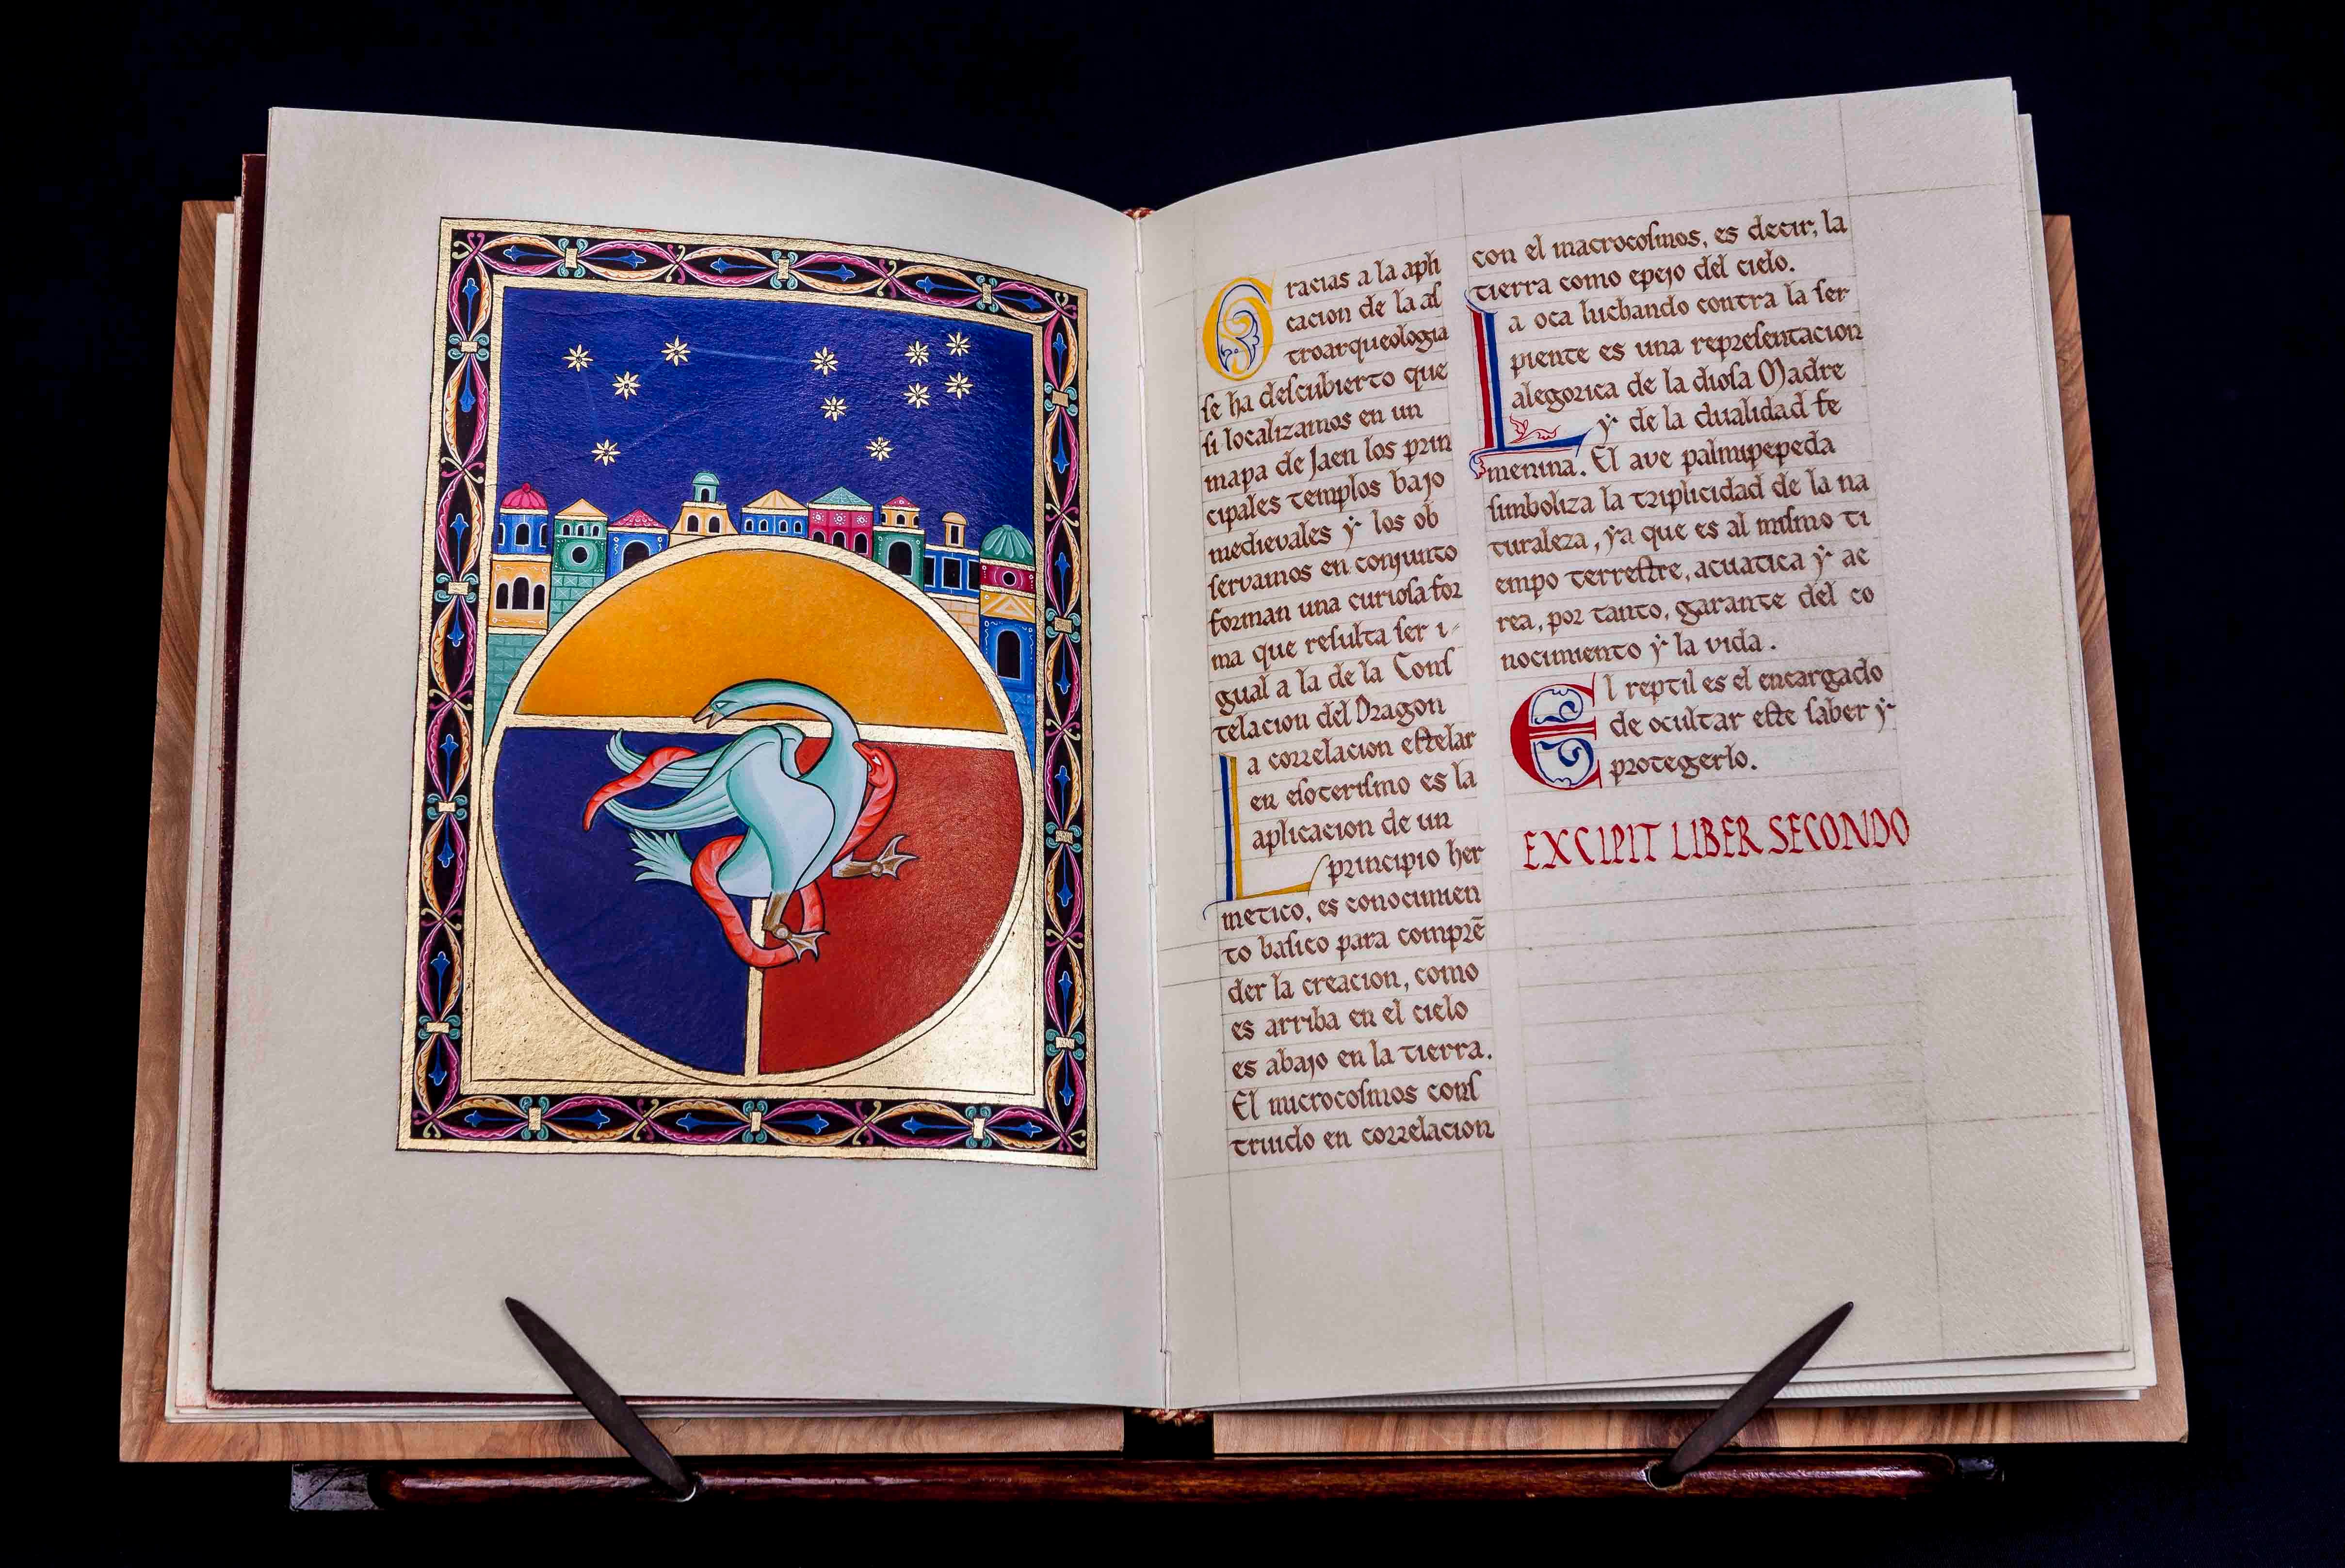 Gracias a la apli
cacion de la aſ
troarqueologia
ſe ha deſcubierto que
ſi localizamos en un
mapa de Jaen los prin
cipales templos bajo
medievales ẏ los ob
ſervamos en conjunto
forman una curioſa for
ma que reſulta ſer i-
gual a la de la Conſ
telacion del Dragon
La correlacion eſtelar
en eſoteriſmo es la
aplicacion de un
principio her
metico, es conocimien
to baſico para comprē
der la creacion, como
es arriba en el cielo
es abajo en la tierra.
El microcoſmos conſ
truido en correlacion
con el macrocoſmos, es decir; la
tierra como epejo del cielo.
La oca luchando contra la ſer
piente es una repreſentacion
alegorica de la dioſa Madre
ẏ de la dualidad fe
menina. El ave palmipepeda
ſimboliza la triplicidad de la na
turaleza, ẏa que es al miſmo ti
empo terreſtre, acuatica ẏ ae
rea, por tanto, garante del co
nocimiento ẏ la vida.
El reptil es el encargado
de ocultar eſte ſaber ẏ
protegerlo.
EXCIPIT LIBER SECONDO